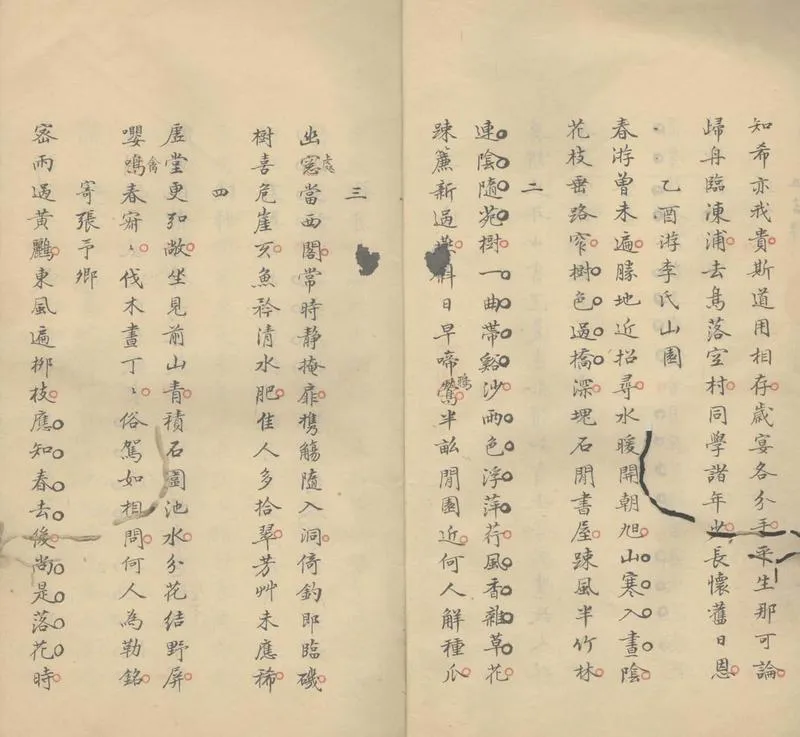 知希亦我貴斯道用相存歲宴各分手平生那可論
歸舟臨凍浦去鳥落空村同學諸年少長懷舊日恩
乙酉游李氏山園
春游曾未遍勝地近招尋水暖開朝旭山寒入晝陰
花枝垂路窄樹色過橋深塊石閒書屋踈風半竹林
二
連陰隨苑樹一曲帶谿沙雨色浮萍荇風香雜草花
踈簾新過燕斜日早啼鶯鴉半畝閒園近何人解種瓜
三
幽窓處當西閣常時静掩扉携觴隨入洞倚釣即臨磯
樹喜危崖亥魚矜清水肥佳人多拾翠芳艸未應稀
四
虚堂更弘敞坐見前山青積石圍池水分花結野屏
嚶鳴禽春寂〻伐木晝丁〻俗駕如相問何人為勒銘
寄張予卿
密雨過黄鸝東風遍柳枝應知春去後尚是落花時